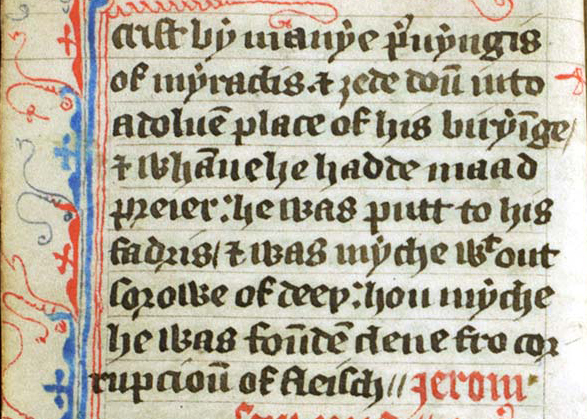 crist bẏ manẏe p̃uẏngis
of mẏraclis. ⁊ ȝede doū into
a doluē place of his birẏīge/
⁊ whāne he hadde maad
preier: he was putt to his
fadris/ ⁊ was mẏche wᵗout
sorowe of deeþ: hou mẏche
he was foūdē clene fro cor
rupcioū of fleisch// Jerom·